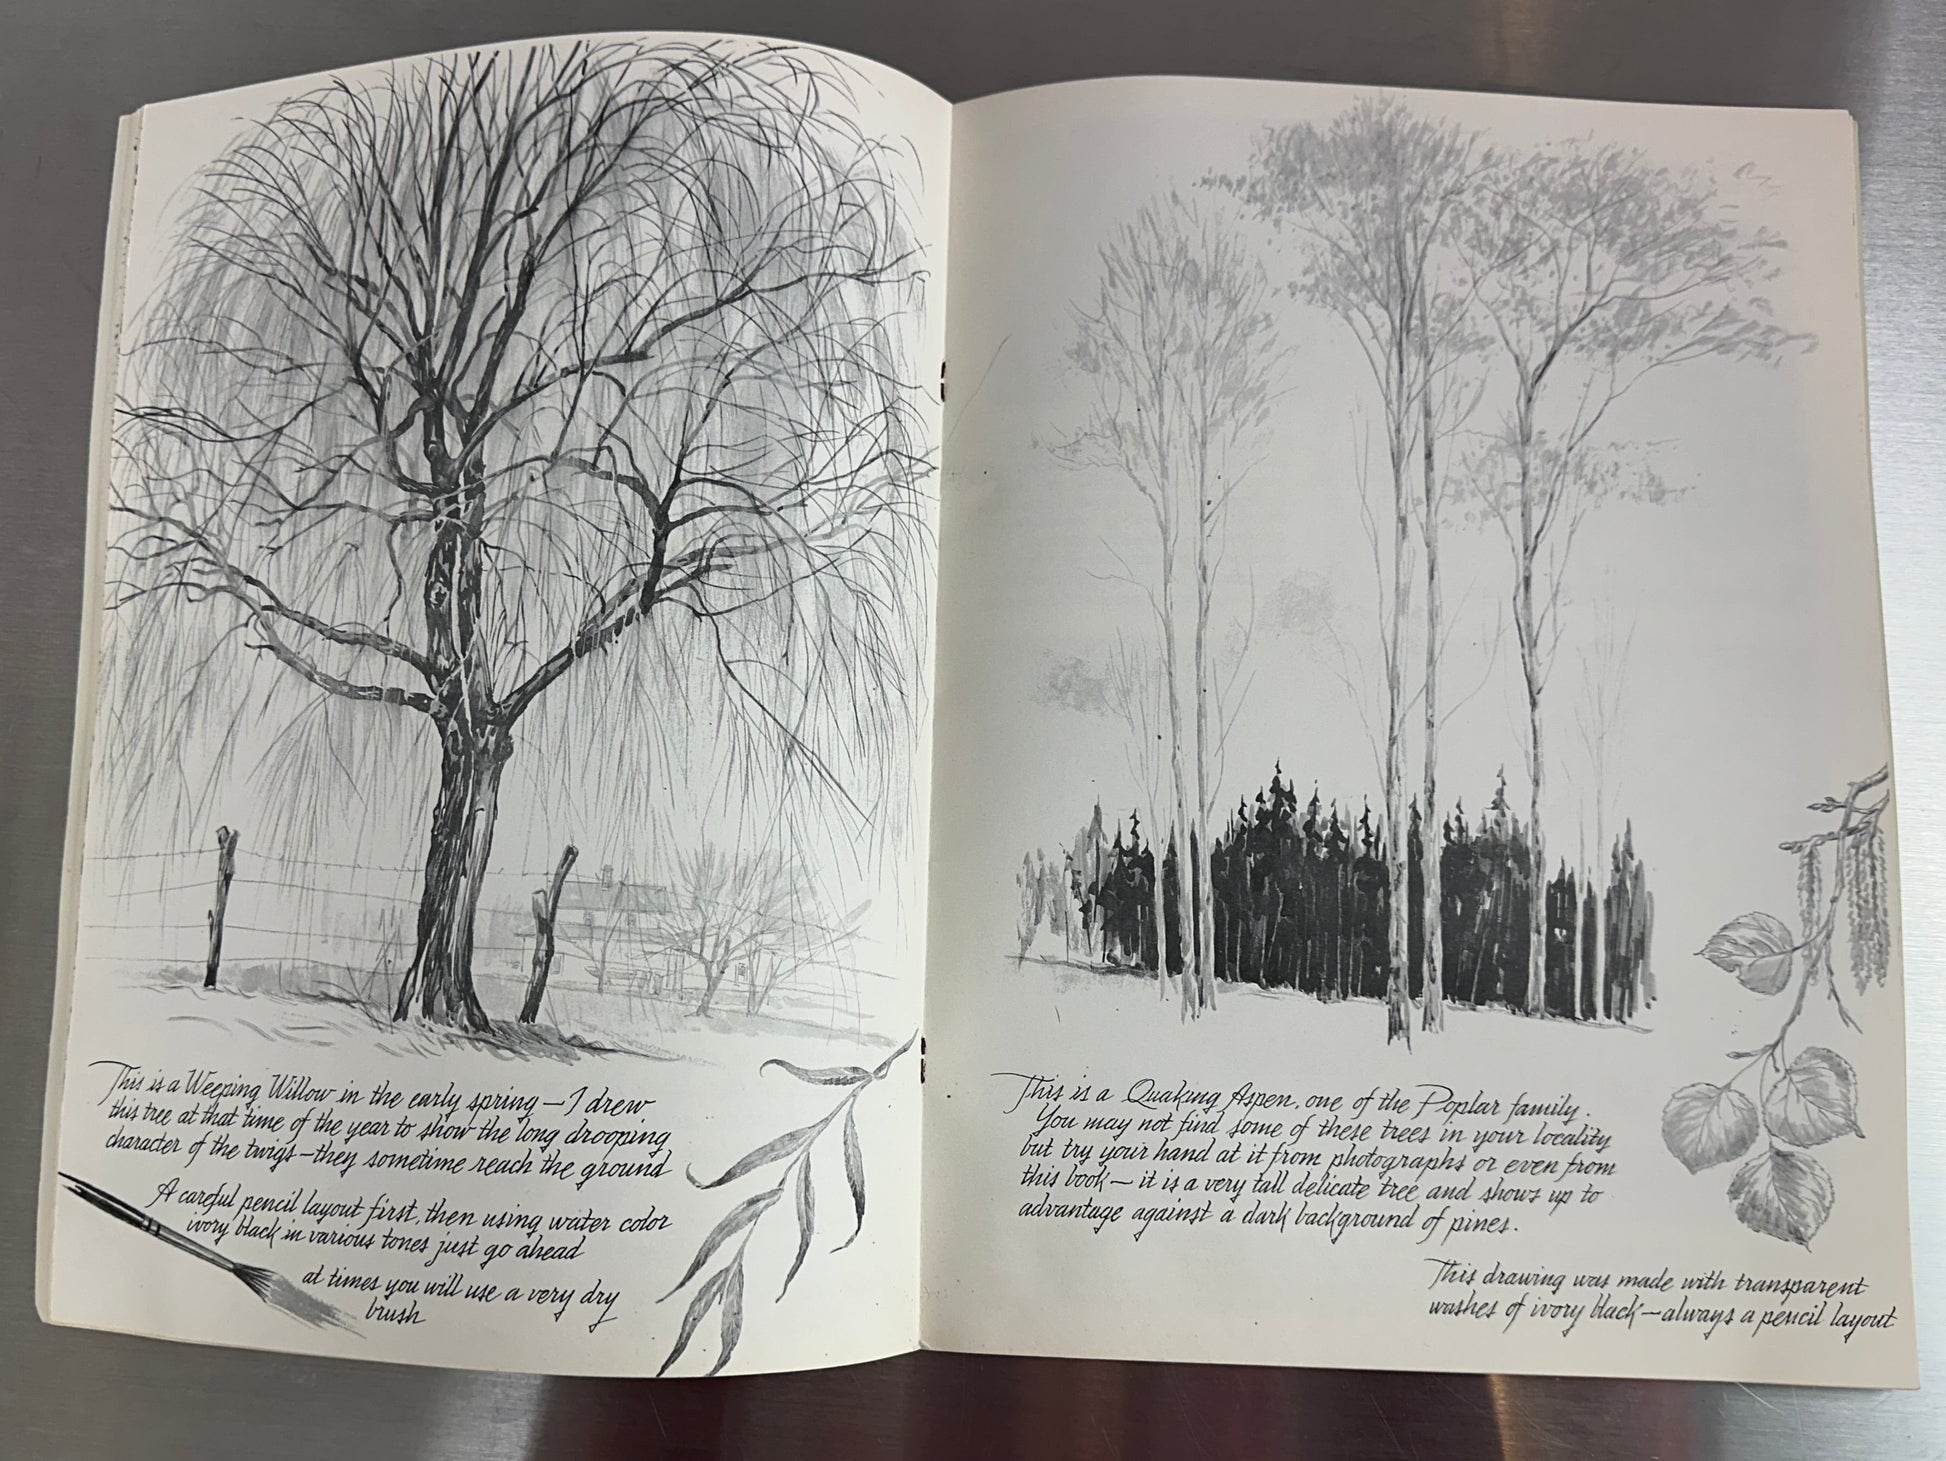 This is a Weeping Willow in the early spring — I drew
this tree at that time of the year to show the long drooping
character of the twigs — they sometime reach the ground
A careful pencil layout first, then using water color
ivory black in various tones just go ahead
at times you will use a very dry
brush
This is a Quaking Aspen, one of the Poplar family.
You may not find some of these trees in your locality
but try your hand at it from photographs or even from
this book — it is a very tall delicate tree and shows up to
advantage against a dark background of pines.
This drawing was made with transparent
washes of ivory black — always a pencil layout